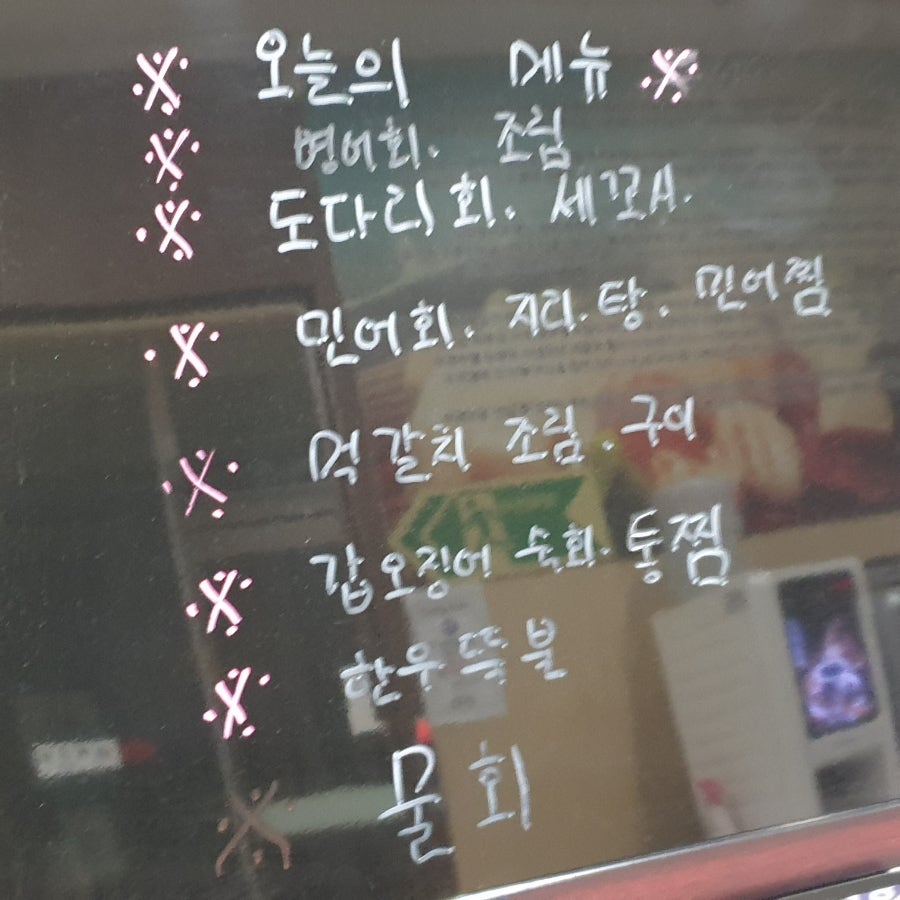 ※ 오늘의 메뉴 ※
※ 병어회. 조림
※ 도다리회. 세꼬시.
※ 민어회. 지리. 탕. 민어찜
※ 먹갈치 조림. 구이
※ 갑오징어 숙회. 통찜
※ 한우뚝불
※ 물회